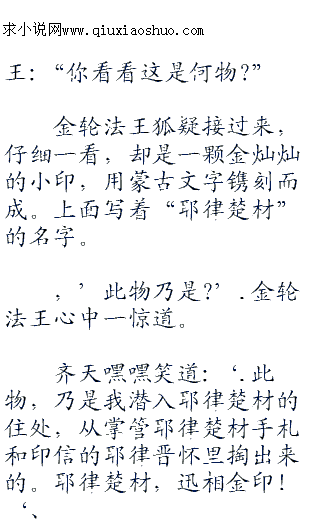 求小说网www.qiuxiaoshuo.com
王:“你看看这是何物?”
金轮法王狐疑接过来,
仔细一看,却是一颗金灿灿
的小印,用蒙古文字镌刻而
成。上面写着“耶律楚材”
的名字。
,’此物乃是?’.金轮
法王心中一惊道。
齐天嘿嘿笑道:‘.此
物,乃是我潜入耶律楚材的
住处,从掌管耶律楚材手札
和印信的耶律晋怀里掏出来
的。耶律楚材,迅相金印!
‘、